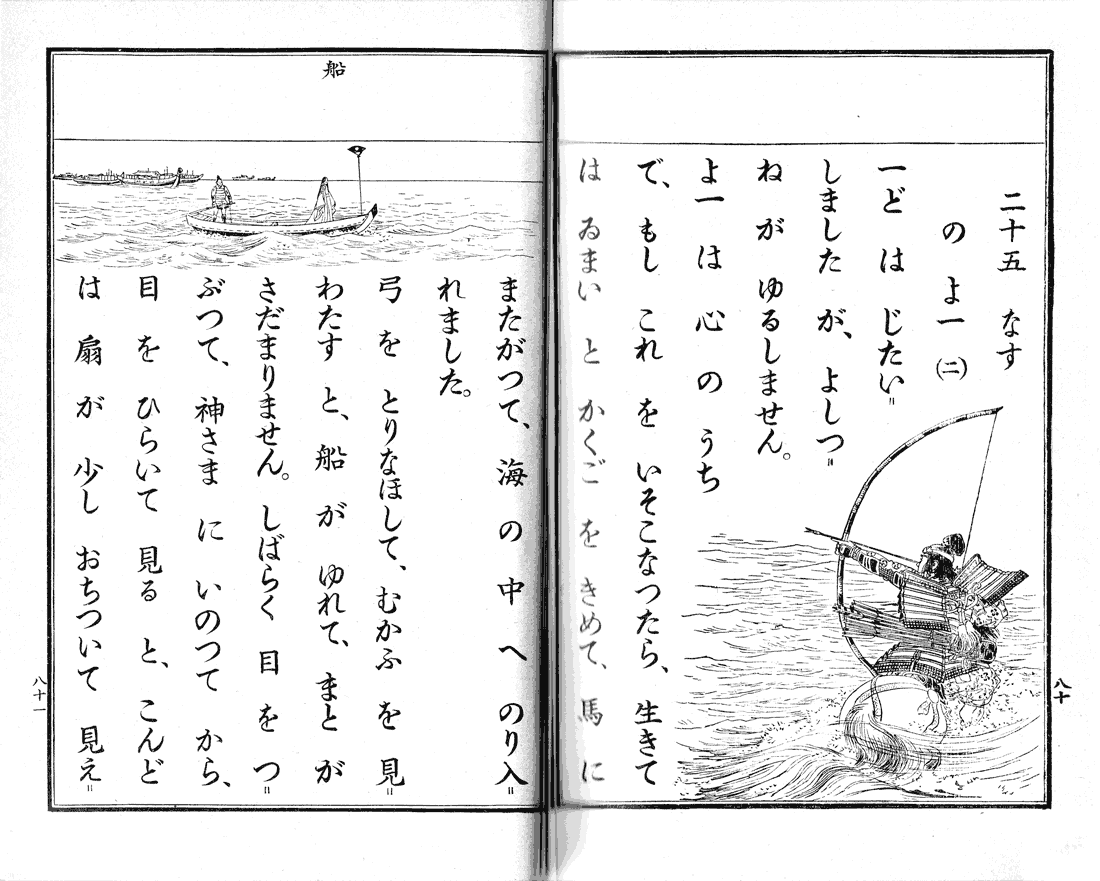 二十五 なす
のよ一 (二)
一ど は じたい＝
しました が、 よしつ＝
ね が ゆるしません。
よ一 は 心 の うち
で、 もし これ を いそこなつたら、 生きて
は ゐまい と かくご を きめて、 馬 に
八十
船
またがつて、 海 の 中 へ のり入＝
れました。
弓 を とりなほして、 むかふ を 見＝
わたす と、 船 が ゆれて、 まと が
さだまりません。 しばらく 目 を つ＝
ぶつて、 神さま に いのつて から、
目 を ひらいて 見る と、 こんど
は 扇 が 少し おちついて 見え＝
八十一